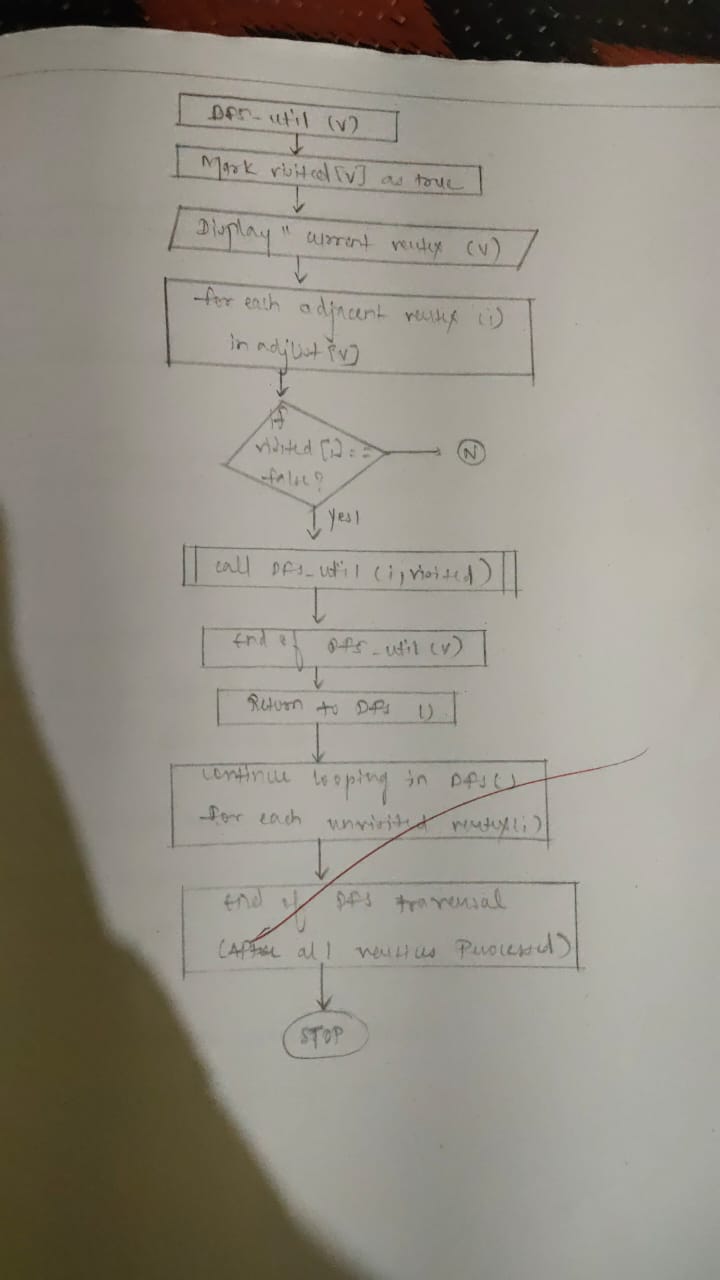 DFS-util (v)
Mark visited [v] as true
Display " current vertex (v)
for each adjacent vertex (i)
in adjlist [v]
if
visited [i] ==
false?
N
Yes1
call DFS_util (i, visited)
End of DFS-util (v)
Return to DFS ()
continue looping in DFS()
for each unvisited vertex(i)
End of DFS traversal
(After all vertices Processed)
STOP